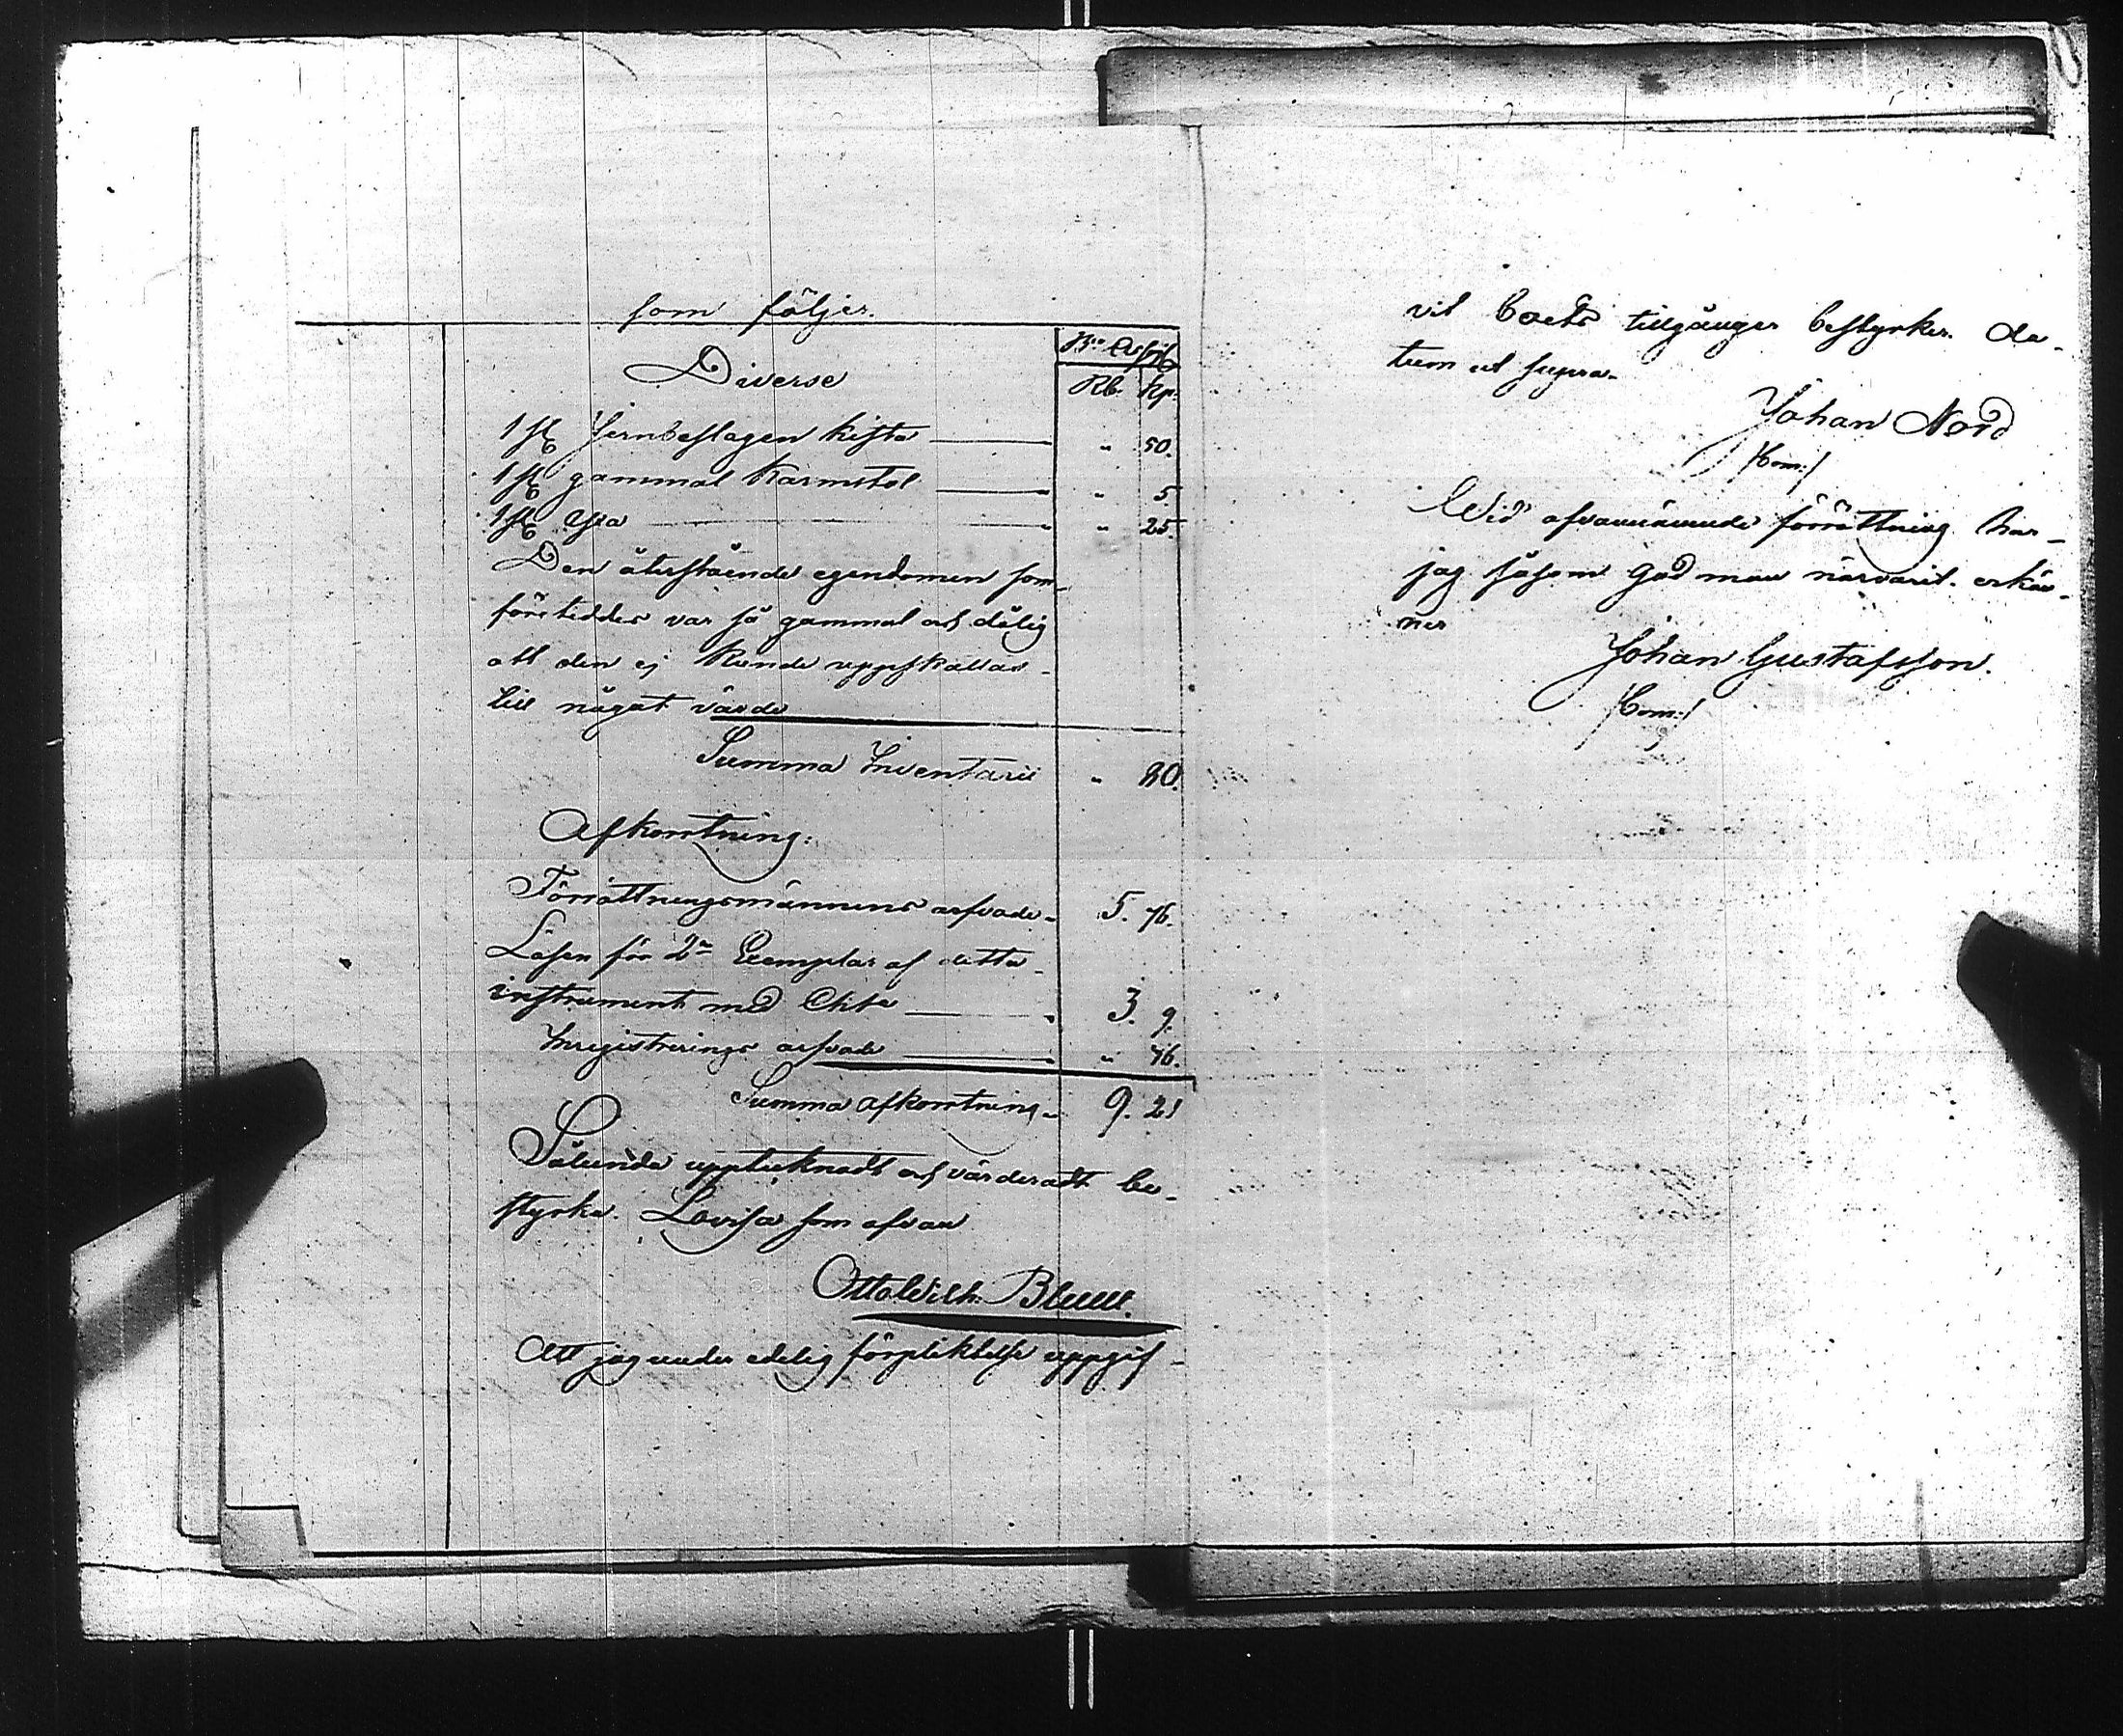 som följer.
Bco Assig
Diverse
Rb. Kp.
1 st Jernbeslagen kista " 50.
1 st gammal Karmstol " 5
1 st Yxa " 25.
Den återstående egendomen som
företeddes var så gammal och dålig
att den ej kunde uppskattas
till något värde
Summa Inventarii " 80.
Afkorrtning:
Förrättningsmännens arfvode 5. 76.
Lösen för 2ne Exemplar af detta
instrument med Chta 3. 9.
Inregistrerings arfvode " 46.
Summa afkorrtning 9. 21
Sålunda upptecknadt och värderadt be-
styrka. Lovisa som ofvan
Otto Wilh: Blum.
Att jag under edelig förpliktelse uppgif-
vit boets tillgånger bestyrker. da-
tum ut supra.
Johan Nord
/bom:/
Wid ofvannämnde förrättning har
jag såsom god man närvarit. erkän-
ner
Johan Gustafsson.
/bom:/